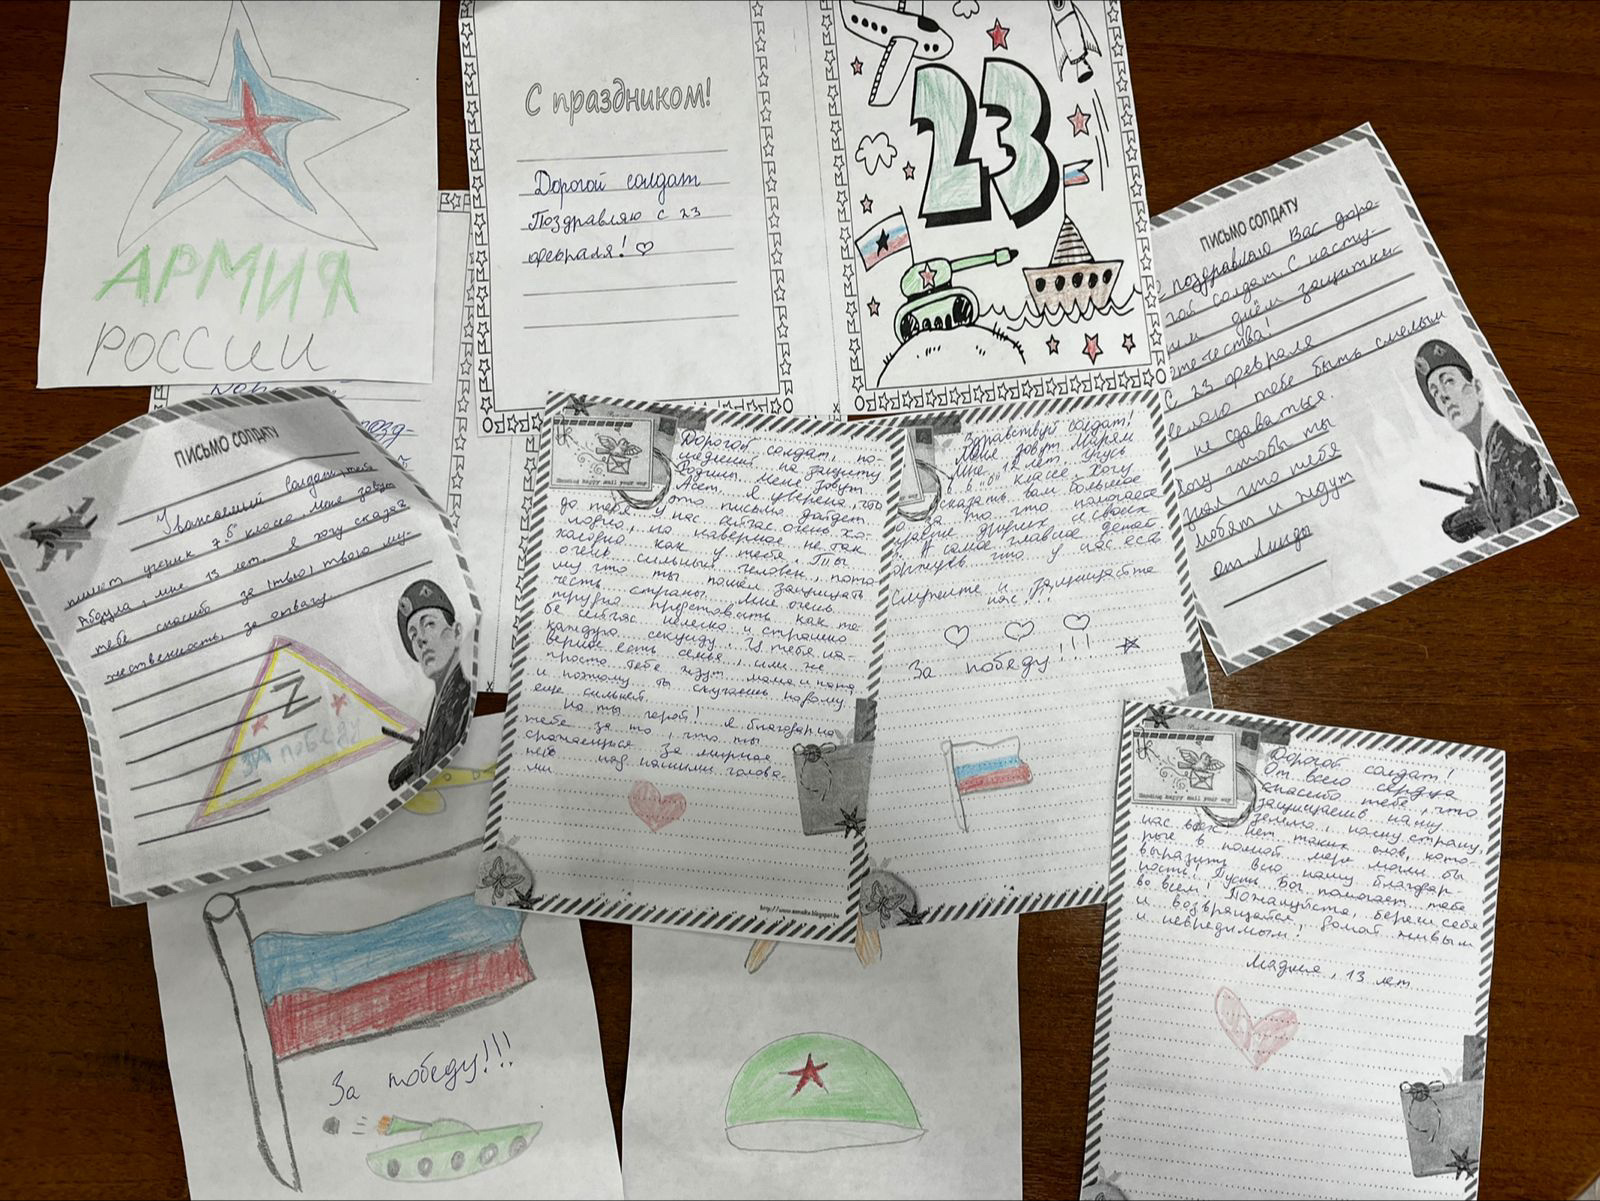 АРМИЯ
РОССИИ
С праздником!
Дорогой солдат
Поздравляю с 23
февраля! ♡
23
ПИСЬМО СОЛДАТУ
поздравляю Вас доро-
гой солдат. С насту-
им днём защитни-
отечества!
С 23 февраля
тебе быть смелым
не сдаваться.
чтобы ты
знал что тебя
любят и ждут
от Линды
ПИСЬМО СОЛДАТУ
Уважаемый солдат, тебе
пишет ученик 7 "б" класса, меня зовут
Абдула, мне 13 лет. Я хочу сказать
тебе спасибо за (твою) твою му-
жественность, за отвагу.
Z
ЗА победу
Sending happy mail your way
Дорогой солдат, по-
Родины. Меня зовут
Асет. Я уверена, что
это письмо дойдет
до тебя. У нас сейчас очень хо-
лодно, но наверное не так
холодно как у тебя. Ты
очень сильный человек, пото-
му что ты пошел защищать
честь страны. Мне очень
трудно представить как те-
бе сейчас нелегко и страшно
каждую секунду. У тебя на-
верное есть семья, или же
просто тебя ждут мама и папа
и поэтому ты скучаешь по дому
еще сильней.
Но ты герой! Я благодарна
тебе за то, что ты
сражаешься за мирное
небо над нашими голова-
ми.
http://www.annaika.blogspot.be
Здравствуй солдат!
Меня зовут Марям
Мне 12 лет. Учусь
в "б" классе. Хочу
сказать вам большое
за то что помогаете
других и своих
А самое главное
что у нас есть
Служите и защищайте
нас!
♡ ♡ ♡
За победу!!!
Sending happy mail your way
Дорогой солдат!
От всего сердца
спасибо тебе, что
защищаешь нашу
землю, нашу страну,
нас всех. Нет таких слов, кото-
рые в полной мере могли бы
выразить всю нашу благодар-
ность! Пусть Бог помогает тебе
во всем! Пожалуйста, береги себя
и возвращайся домой живым
и невредимым!
Мадина, 13 лет
За победу!!!